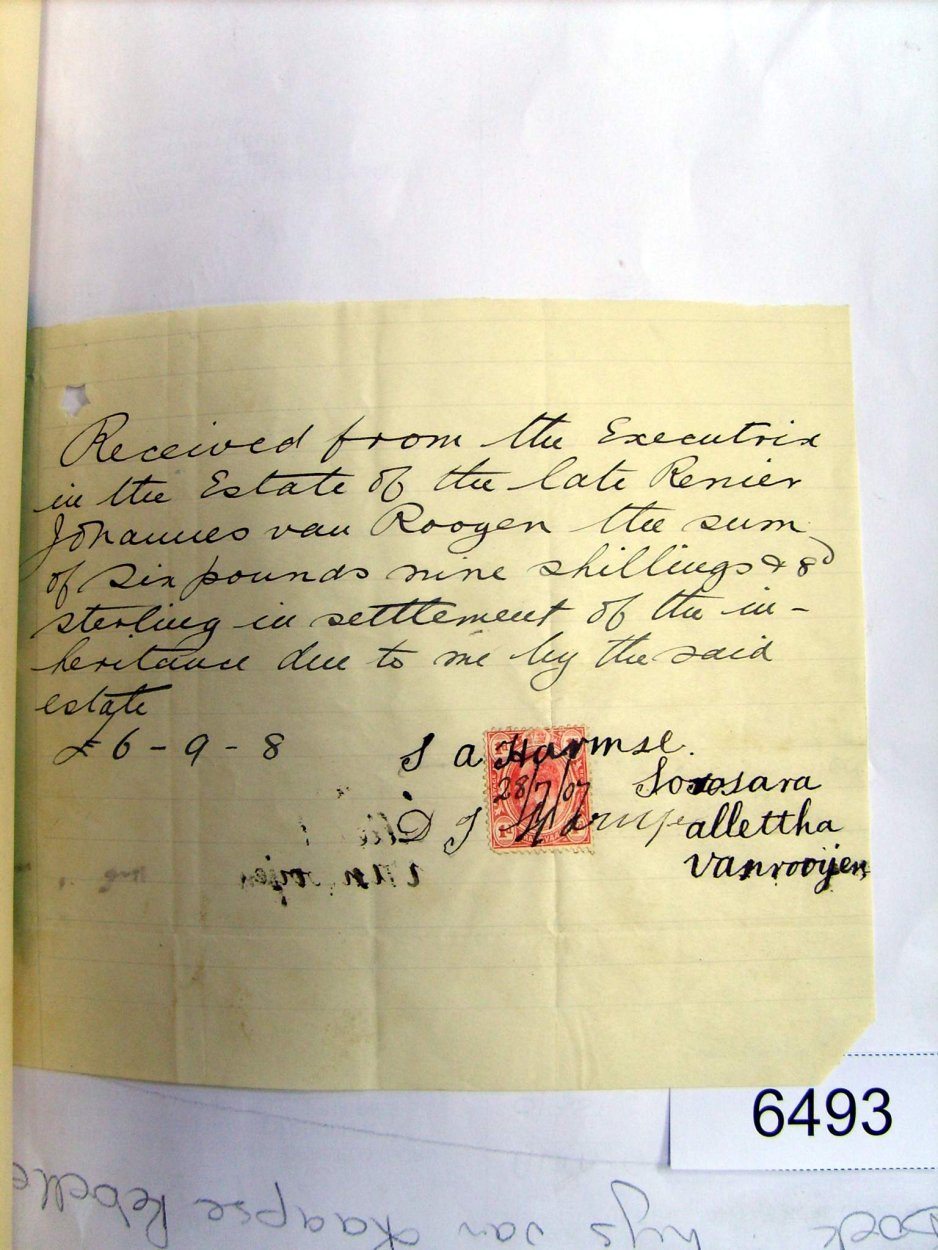 Received from the Executrix
in the Estate of the late Renier
Johannes van Rooyen the sum
of Six pounds nine shillings & 8d
sterling in settlement of the in-
heritance due to me by the said
estate
£6-9-8
S a Harmse.
28/7/07
sara
D J
allettha
vanrooijen
6493
hys van Kaapse Rebelle